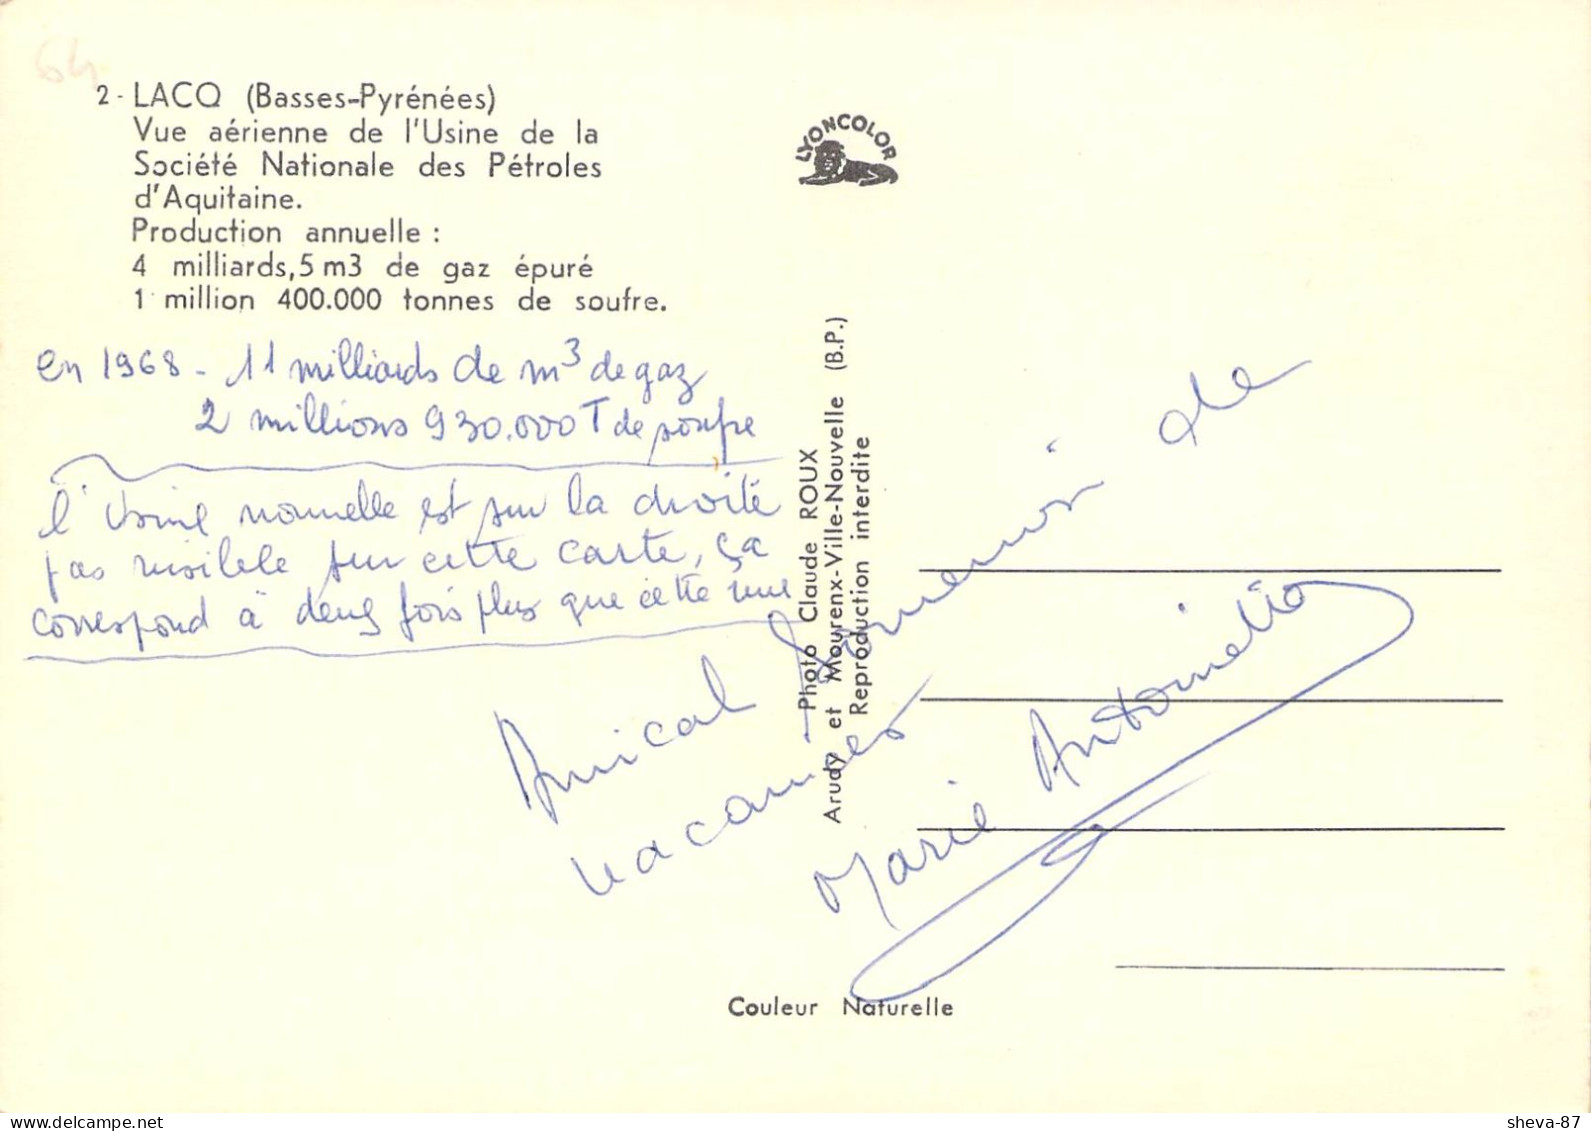 64
2 - LACQ (Basses-Pyrénées)
Vue aérienne de l'Usine de la
Société Nationale des Pétroles
d'Aquitaine.
Production annuelle :
4 milliards,5 m3 de gaz épuré
1 million 400.000 tonnes de soufre.
en 1968 - 11 milliards de m3 de gaz
2 millions 930.000 T de soufre
l'usine nouvelle est sur la droite
pas visible sur cette carte, ça
correspond à deux fois plus que cette vue
LYONCOLOR
Photo Claude ROUX
Arudy et Mourenx-Ville-Nouvelle (B.P.)
Reproduction interdite
Amical souvenir de
vacances
Marie Antoinette
Couleur Naturelle
sheva-87